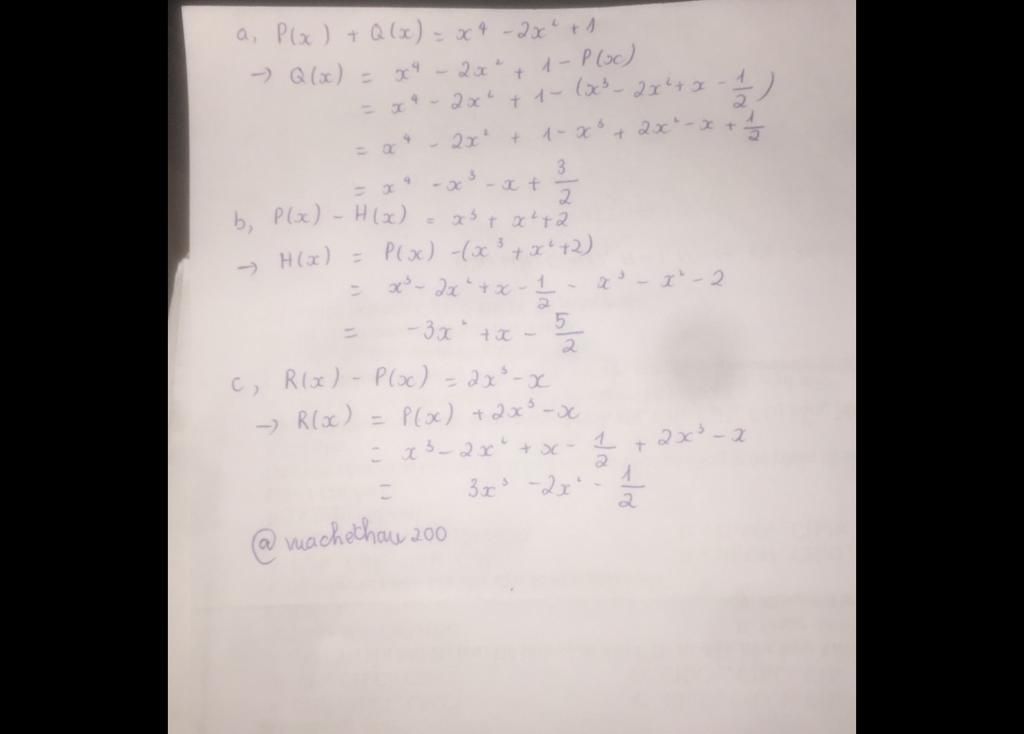 a, P(x) + Q(x) = x⁴ - 2x² + 1
→ Q(x) = x⁴ - 2x² + 1 - P(x)
= x⁴ - 2x² + 1 - (x³ - 2x² + x - 1/2)
= x⁴ - 2x² + 1 - x³ + 2x² - x + 1/2
= x⁴ - x³ - x + 3/2
b, P(x) - H(x) = x³ + x² + 2
→ H(x) = P(x) - (x³ + x² + 2)
= x³ - 2x² + x - 1/2 - x³ - x² - 2
= -3x² + x - 5/2
c, R(x) - P(x) = 2x³ - x
→ R(x) = P(x) + 2x³ - x
= x³ - 2x² + x - 1/2 + 2x³ - x
= 3x³ - 2x² - 1/2
@vuachethau200